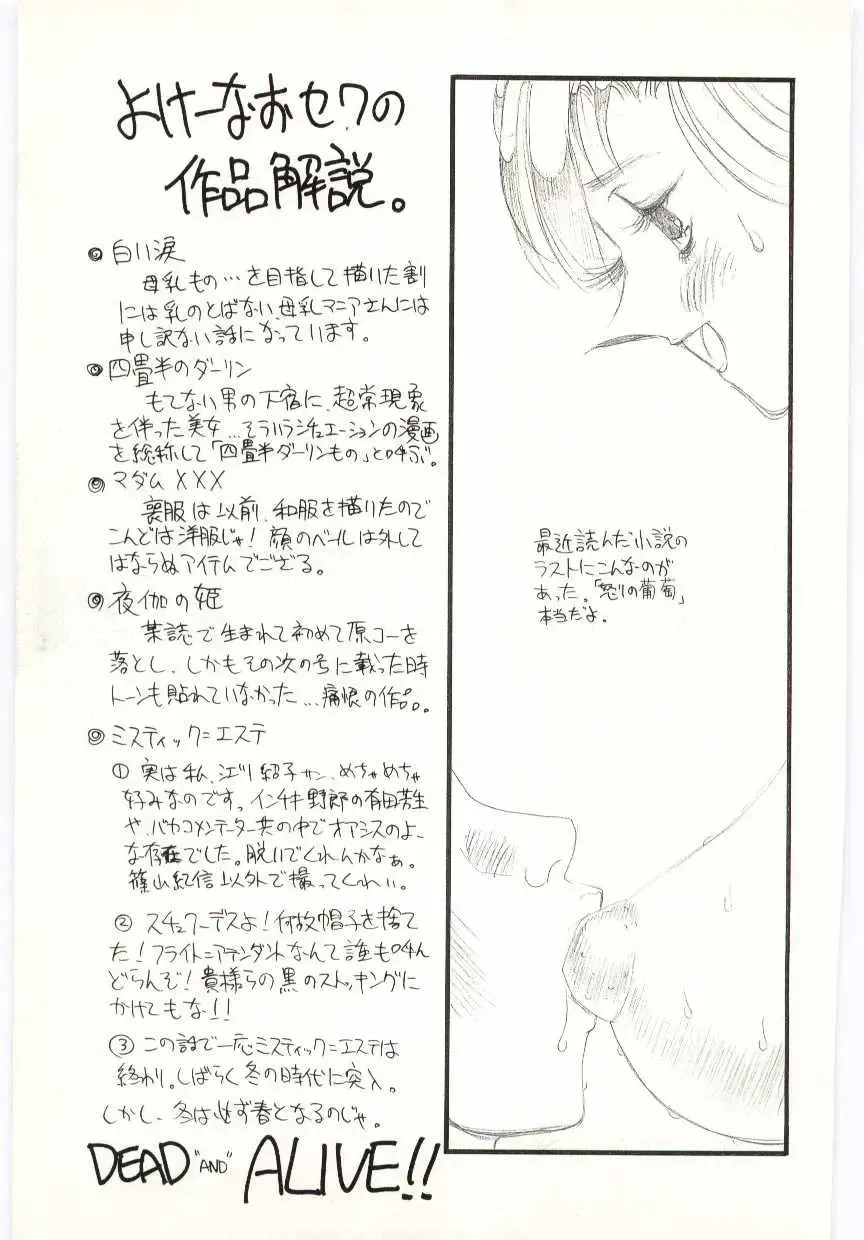 よけーなおセワの
作品解説。
◎白い涙
母乳もの…を目指して描いた割
には乳のとばない、母乳マニアさんには
申し訳ない話になっています。
◎四畳半のダーリン
もてない男の下宿に、超常現象
を伴った美女…そういうシチュエーションの漫画
を総称して「四畳半ダーリンもの」と呼ぶ。
◎マダムXXX
喪服は以前、和服を描いたので
こんどは洋服じゃ!顔のベールは外して
はならぬアイテムでござる。
◎夜伽の姫
某誌で生まれて初めて原コーを
落とし、しかもその次の号に載った時
トーンも貼れていなかった…痛恨の作品。
◎ミスティック=エステ
① 実は私、江川紹子サン、めちゃめちゃ
好みなのですっ。インチキ野郎の有田芳生
や、バカコメンテーター共の中でオアシスのよー
な存在でした。脱いでくれんかなぁ。
篠山紀信以外で撮ってくれい。
② スチュワーデスよ!何故帽子を捨て
た!フライト=アテンダントなんて誰も呼ん
どらんぞ!貴様らの黒のストッキングに
かけてもな!!
③ この話で一応ミスティック=エステは
終わり。しばらく冬の時代に突入。
しかし、冬は必ず春となるのじゃ。
DEAD "AND" ALIVE!!
最近読んだ小説の
ラストにこんなのが
あった。「怒りの葡萄」
本当だよ。